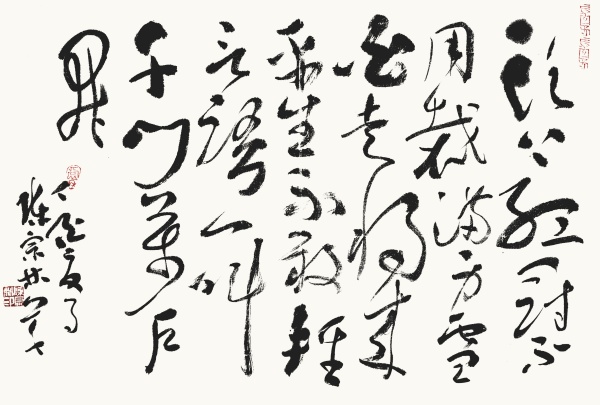 头上红冠不
用裁满身雪
白走将来
平生不敢轻
言语一叫
千门万户
开